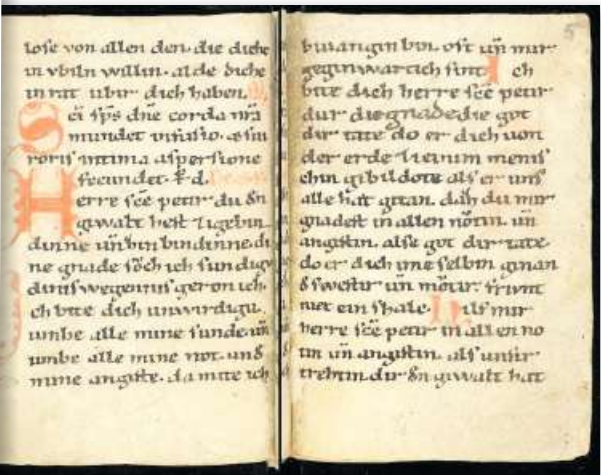 lose von allen den. die diche
in vbiln willin. alde diche
in rat ubir dich haben.
Sci sps dne corda nra
mundet infusio. &
roris intima aspersione
fecundet.
Herre sce petir du
giwalt hest
dinne un bin bindinne di
ne gnade
dinis wegennis geron ich.
ch bite dich unwirdigu.
umbe alle mine sunde. un
umbe alle mine not.
mine angiste. da mite ich
5
bivangin bin. oft un mir
geginwartich sint. I ch
bite dich herre sce petir
dur die gnade die got
dir tete do er dich von
der erde
chin gibildote als er uns
alle hat gitan. daz du mir
gnadest in allen notin. un
angistin. alse got dir tate
do er dich ime selbin ginan
swestir un
niet ein shale. Hilf mir
herre sce petir in allen no
tin un angistin. als unsir
trehtin dir giwalt hat